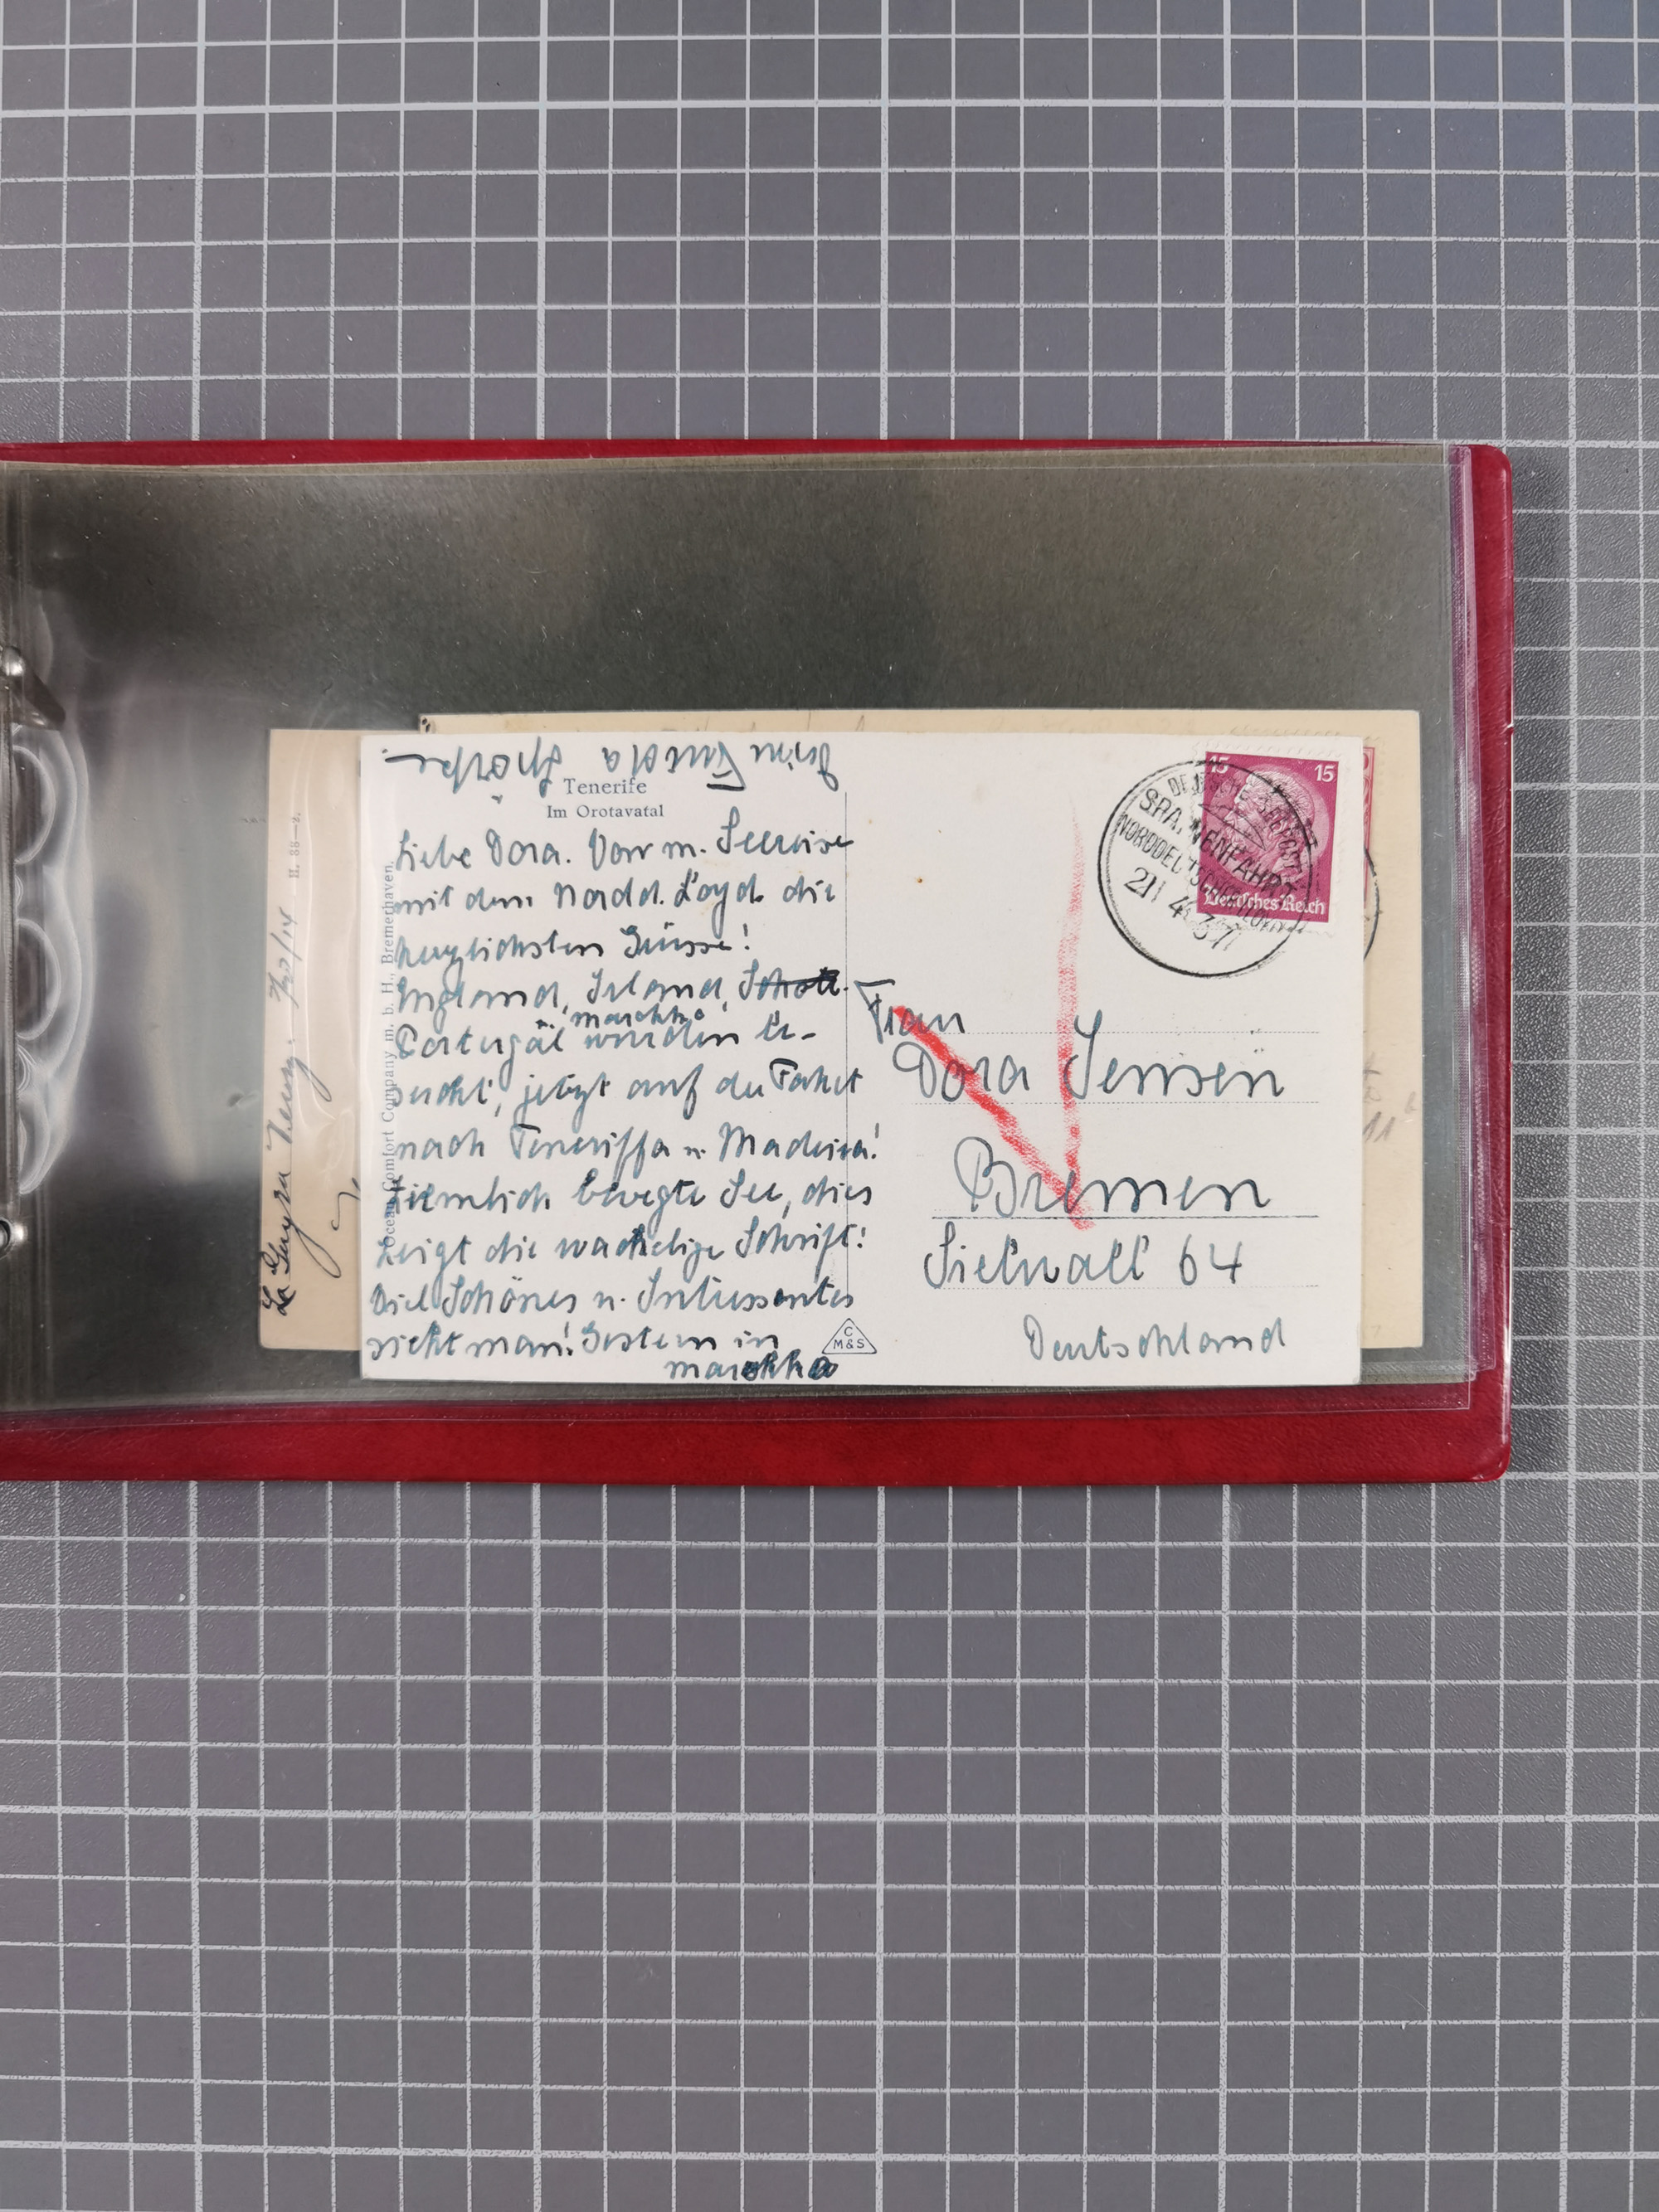 Tenerife
Im Orotavatal
Liebe Dora. Von m. Seereise
mit dem Nordd. Loyd die
herzlichsten Grüsse!
England, Irland, Schott-
Portugal u. Marokko wurden be-
sucht, jetzt auf der Fahrt
nach Teneriffa u. Madeira!
Ziemlich bewegte See, dies
zeigt die wackelige Schrift!
Viel Schönes u. Interessantes
sieht man! Gestern in
Marokko
Deine
Ocean Comfort Company m. b. H., Bremerhaven.
C
M&S
15 15
Deutsches Reich
DEUTSCHE
SPANIENFAHRT
NORDDEUTSCHER LLOYD
Frau
Dora Jensen
Bremen
Sielwall 64
Deutschland
La Guyra
H. 88—2.